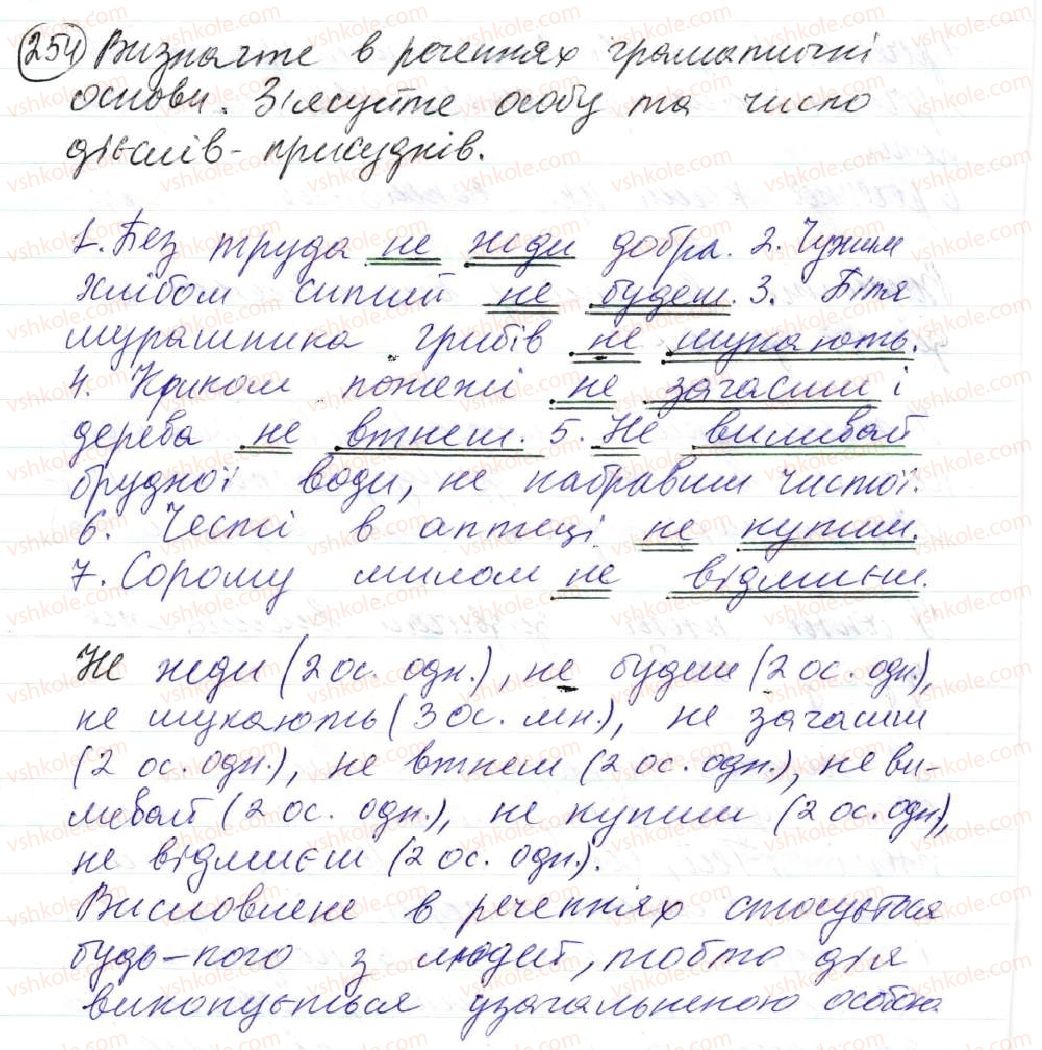 254 Визначте в реченнях граматичні
основи. З'ясуйте особу та число
дієслів-присудків.
1. Без труда не жди добра. 2. Чужим
хлібом ситий не будеш. 3. Біля
мурашника грибів не шукають.
4. Криком пожежі не загасиш і
дерева не втнеш. 5. Не виливай
брудної води, не набравши чистої.
6. Честі в аптеці не купиш.
7. Сорому милом не відмиєш.
Не жди (2 ос. одн.), не будеш (2 ос. одн.),
не шукають (3 ос. мн.), не загасиш
(2 ос. одн.), не втнеш (2 ос. одн.), не ви-
ливай (2 ос. одн.), не купиш (2 ос. одн.),
не відмиєш (2 ос. одн.).
Висловлене в реченнях стосується
будь-кого з людей, тобто дія
виконується узагальненою особою